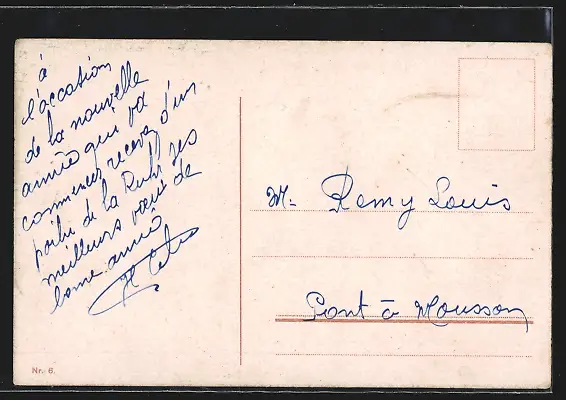 à
l'accation
de la nouvelle
année qui va
commencer recevez d'un
poilu de la Ruhr ses
meilleurs vœux de
bonne année
Mr. Remy Louis
Pont à Mousson
Nr. 6.